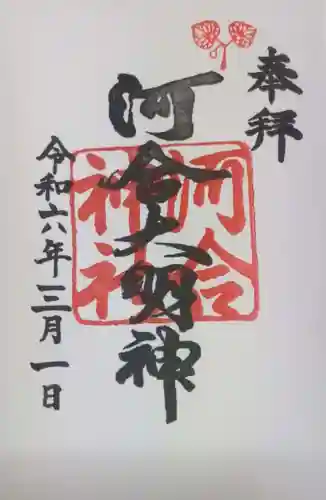 奉拝
河合大明神
河合
神社
令和六年三月一日